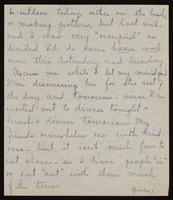 in outdoors today, either on the beach
or making pictures, but Earl wak-
ened & was very "occupied" so
decided I'd do some house work
over this Saturday and Sunday.
Excuse me while I let my maid go
I'm dismissing her for the rest of
the day and tomorrow, since I'm
invited out to dinner tonight &
lunch & dinner tomorrow. My
friends overwhelm me with kind-
ness - but it isn't much fun to
eat alone - so I have people "in"
or eat "out" with them much
of the time.
(over)